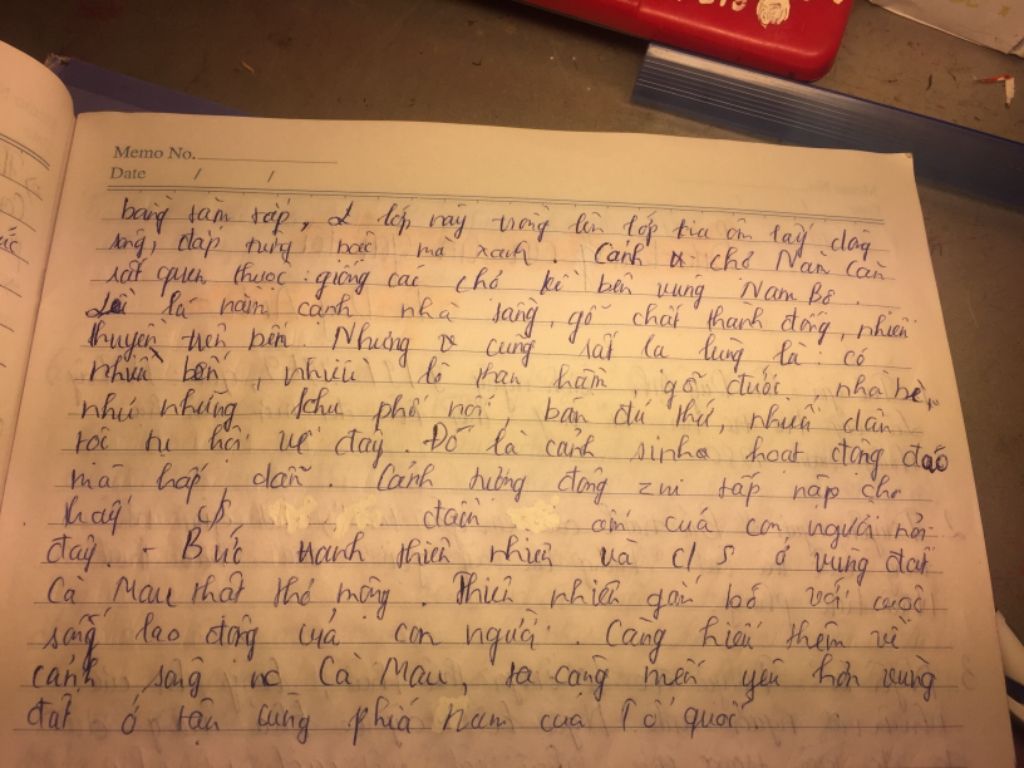 Memo No.
Date / /
bằng tăm tắp, lớp này trồng lên lớp kia ôm lấy dòng
sông, đắp từng bậc mà xanh. Cảnh chợ Năm Căn
rất quen thuộc: giống các chợ kề bên vùng Nam Bộ.
lá nằm cạnh nhà sàng, gỗ chất thành đống, nhiều
thuyền trên bến. Nhưng cũng rất lạ lùng là: có
nhiều bến, nhiều lò than hầm gỗ đước, nhà bè,
như những khu phố nổi, bán đủ thứ, nhiều dân
tộc tụ hội về đây. Đó là cảnh sinh hoạt động đáo
mà hấp dẫn. Cảnh tượng đông zui tấp nập cho
thấy c/s đầm ấm của con người nơi
đây. - Bức tranh thiên nhiên và c/s ở vùng đất
Cà Mau thật thơ mộng. Thiên nhiên gắn bó với cuộc
sống lao động của con người. Càng hiểu thêm về
cảnh sông nc Cà Mau, ta càng mến yêu hơn vùng
đất ở tận cùng phía nam của Tổ quốc